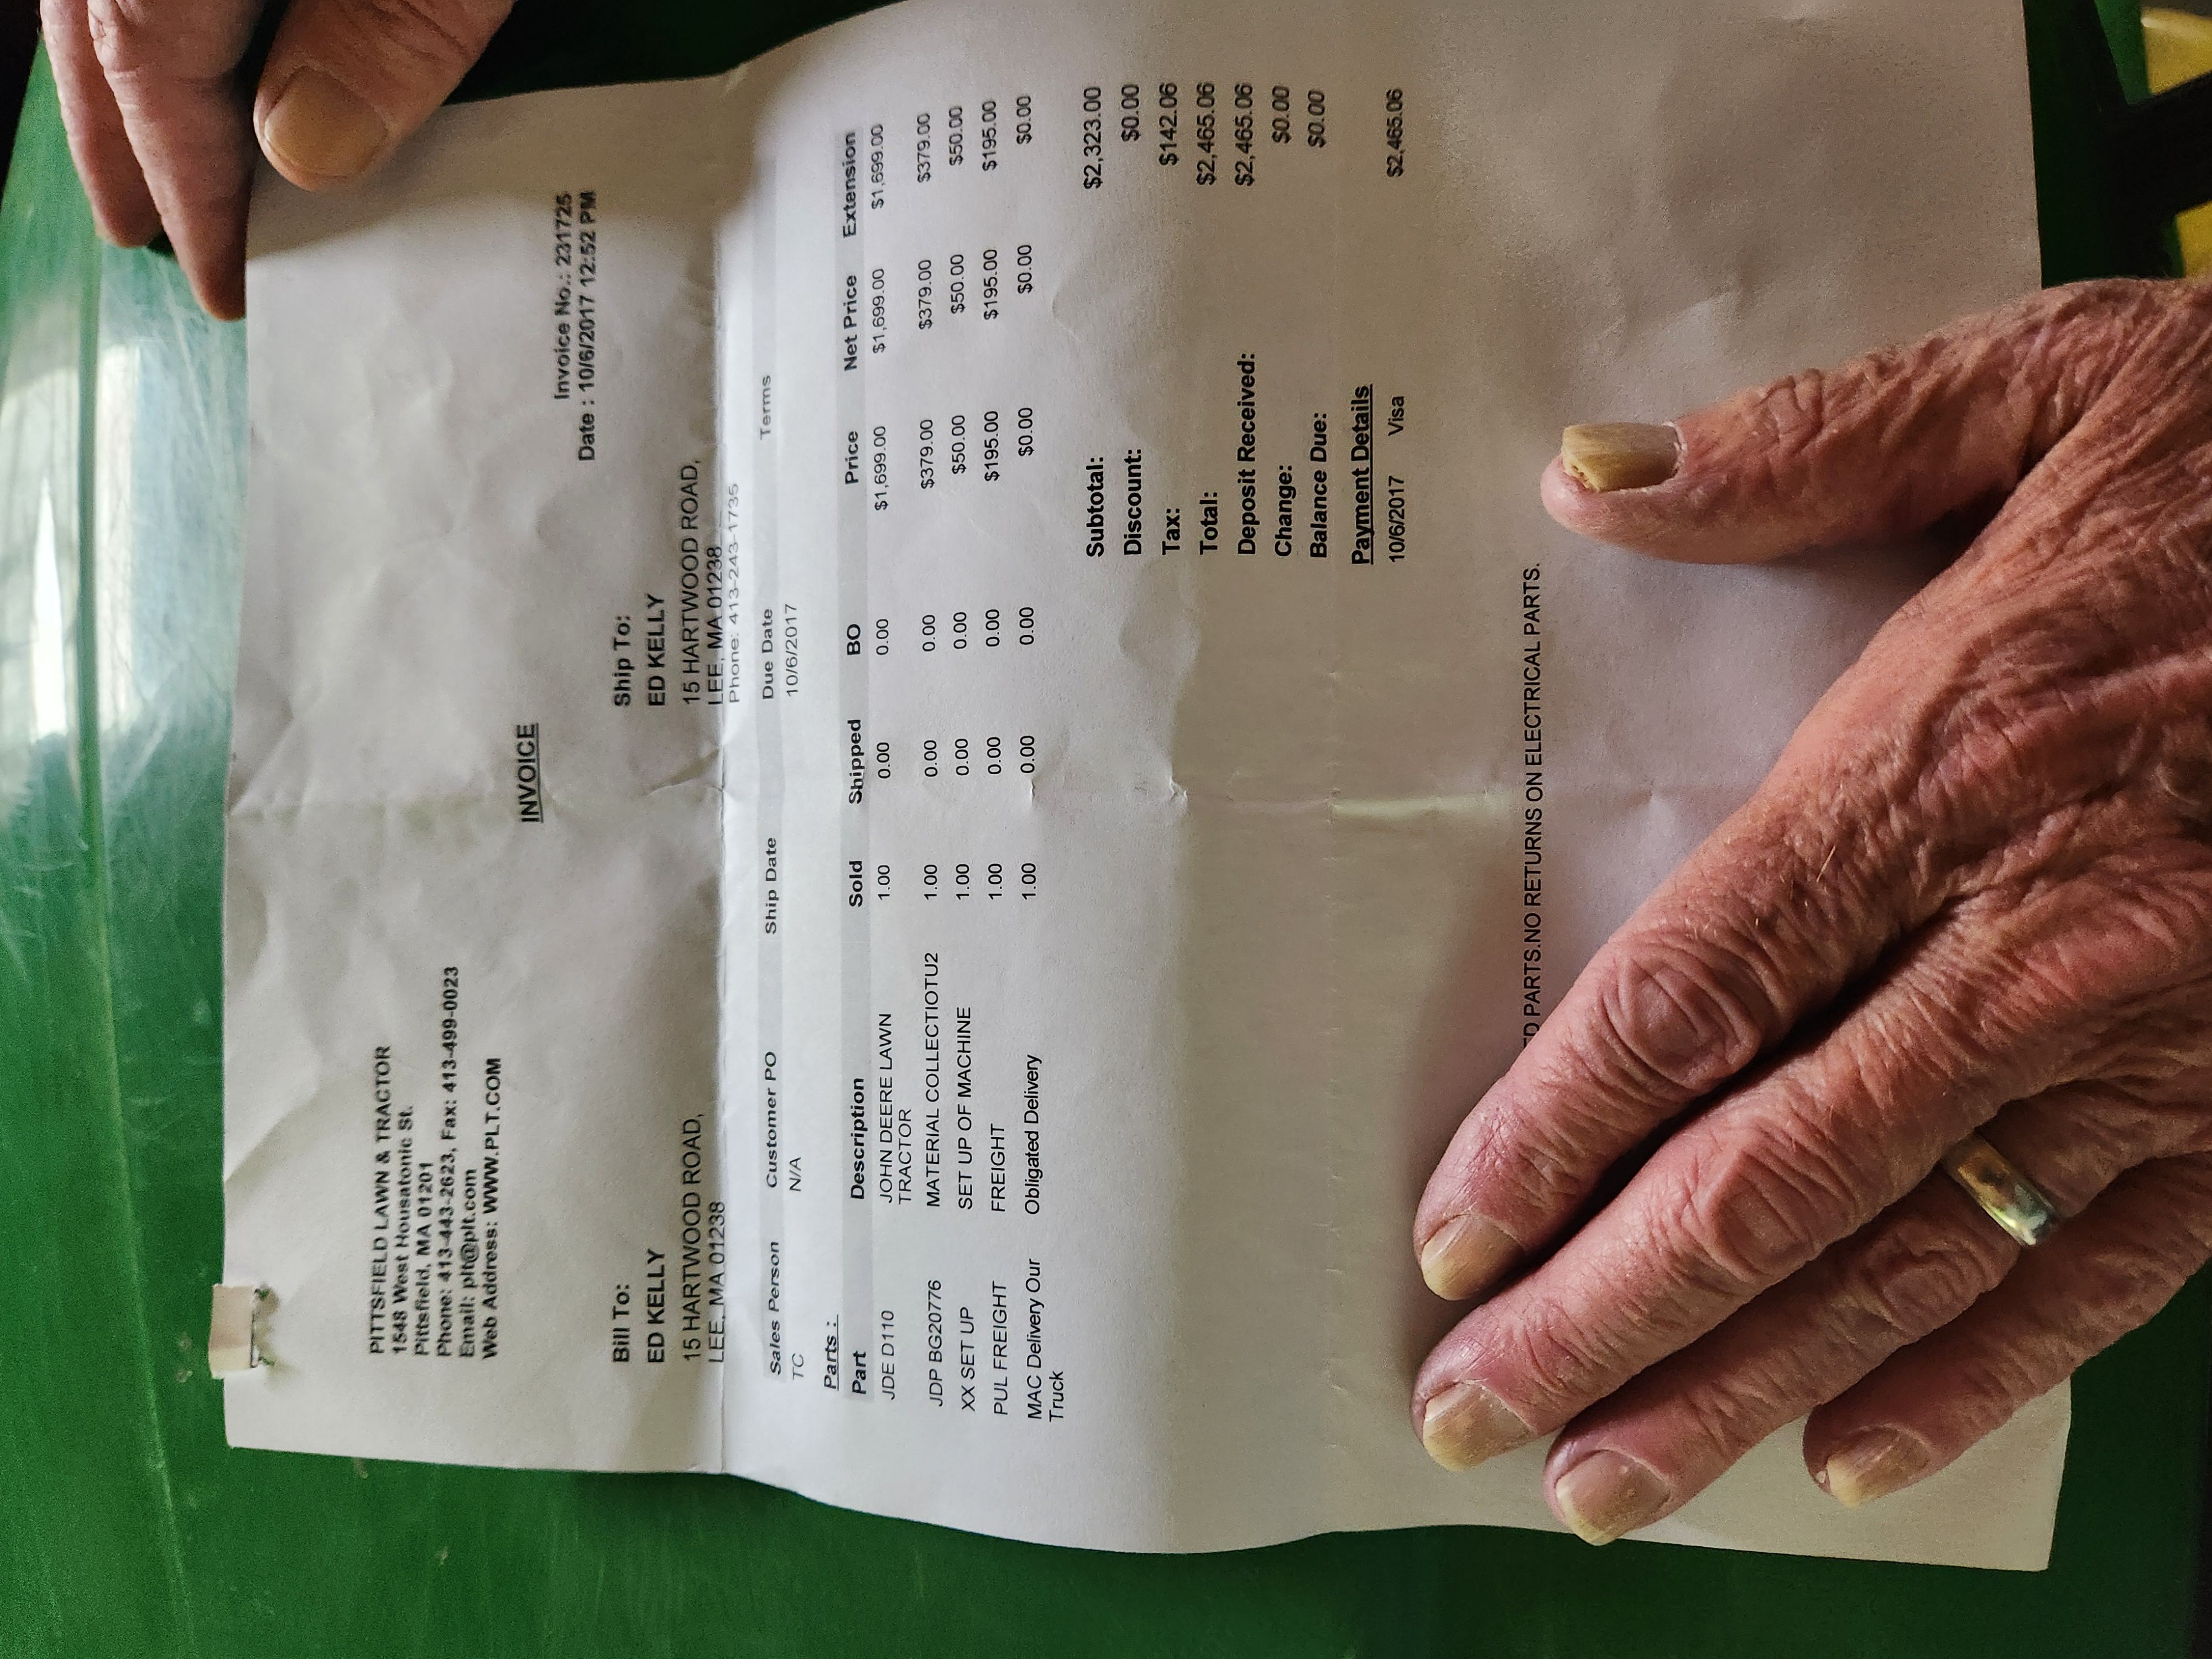 PITTSFIELD LAWN & TRACTOR
1548 West Housatonic St.
Pittsfield, MA 01201
Phone: 413-443-2623, Fax: 413-499-0023
Email: plt@plt.com
Web Address: WWW.PLT.COM
INVOICE
Invoice No.: 231725
Date : 10/6/2017 12:52 PM
Bill To: Ship To:
ED KELLY ED KELLY
15 HARTWOOD ROAD, 15 HARTWOOD ROAD,
LEE, MA 01238 LEE, MA 01238
Phone: 413-243-1735
Sales Person Customer PO Ship Date Due Date Terms
TC N/A 10/6/2017
Parts :
Part Description Sold Shipped BO Price Net Price Extension
JDE D110 JOHN DEERE LAWN 1.00 0.00 0.00 $1,699.00 $1,699.00 $1,699.00
TRACTOR
JDP BG20776 MATERIAL COLLECTIOTU2 1.00 0.00 0.00 $379.00 $379.00 $379.00
XX SET UP SET UP OF MACHINE 1.00 0.00 0.00 $50.00 $50.00 $50.00
PUL FREIGHT FREIGHT 1.00 0.00 0.00 $195.00 $195.00 $195.00
MAC Delivery Our Obligated Delivery 1.00 0.00 0.00 $0.00 $0.00 $0.00
Truck
Subtotal: $2,323.00
Discount: $0.00
Tax: $142.06
Total: $2,465.06
Deposit Received: $2,465.06
Change: $0.00
Balance Due: $0.00
Payment Details
10/6/2017 Visa $2,465.06
PARTS.NO RETURNS ON ELECTRICAL PARTS.